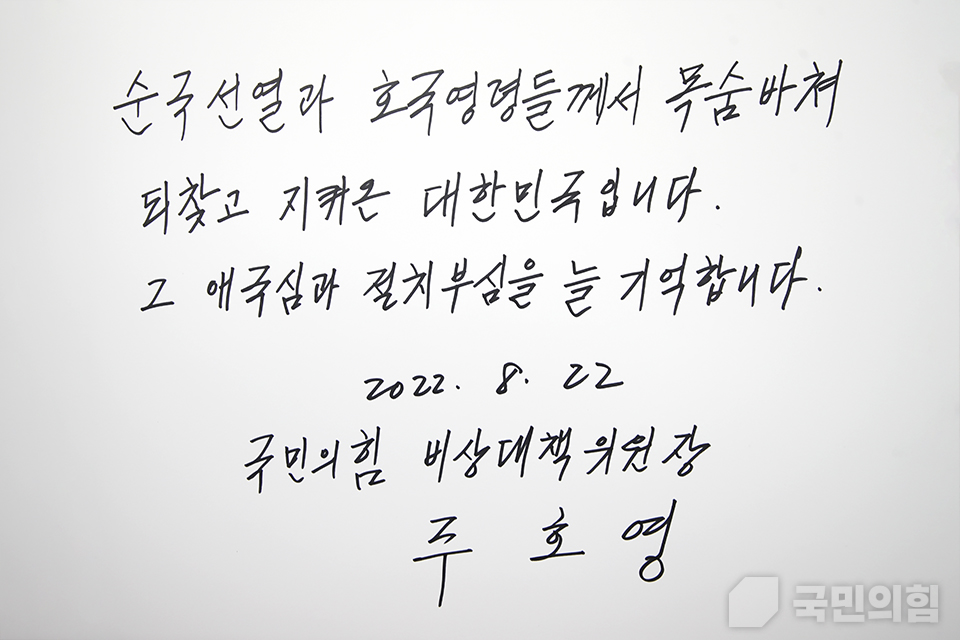 순국선열과 호국영령들께서 목숨바쳐
되찾고 지켜온 대한민국입니다.
그 애국심과 절치부심을 늘 기억합니다.
2022. 8. 22
국민의힘 비상대책위원장
주 호 영
국민의힘